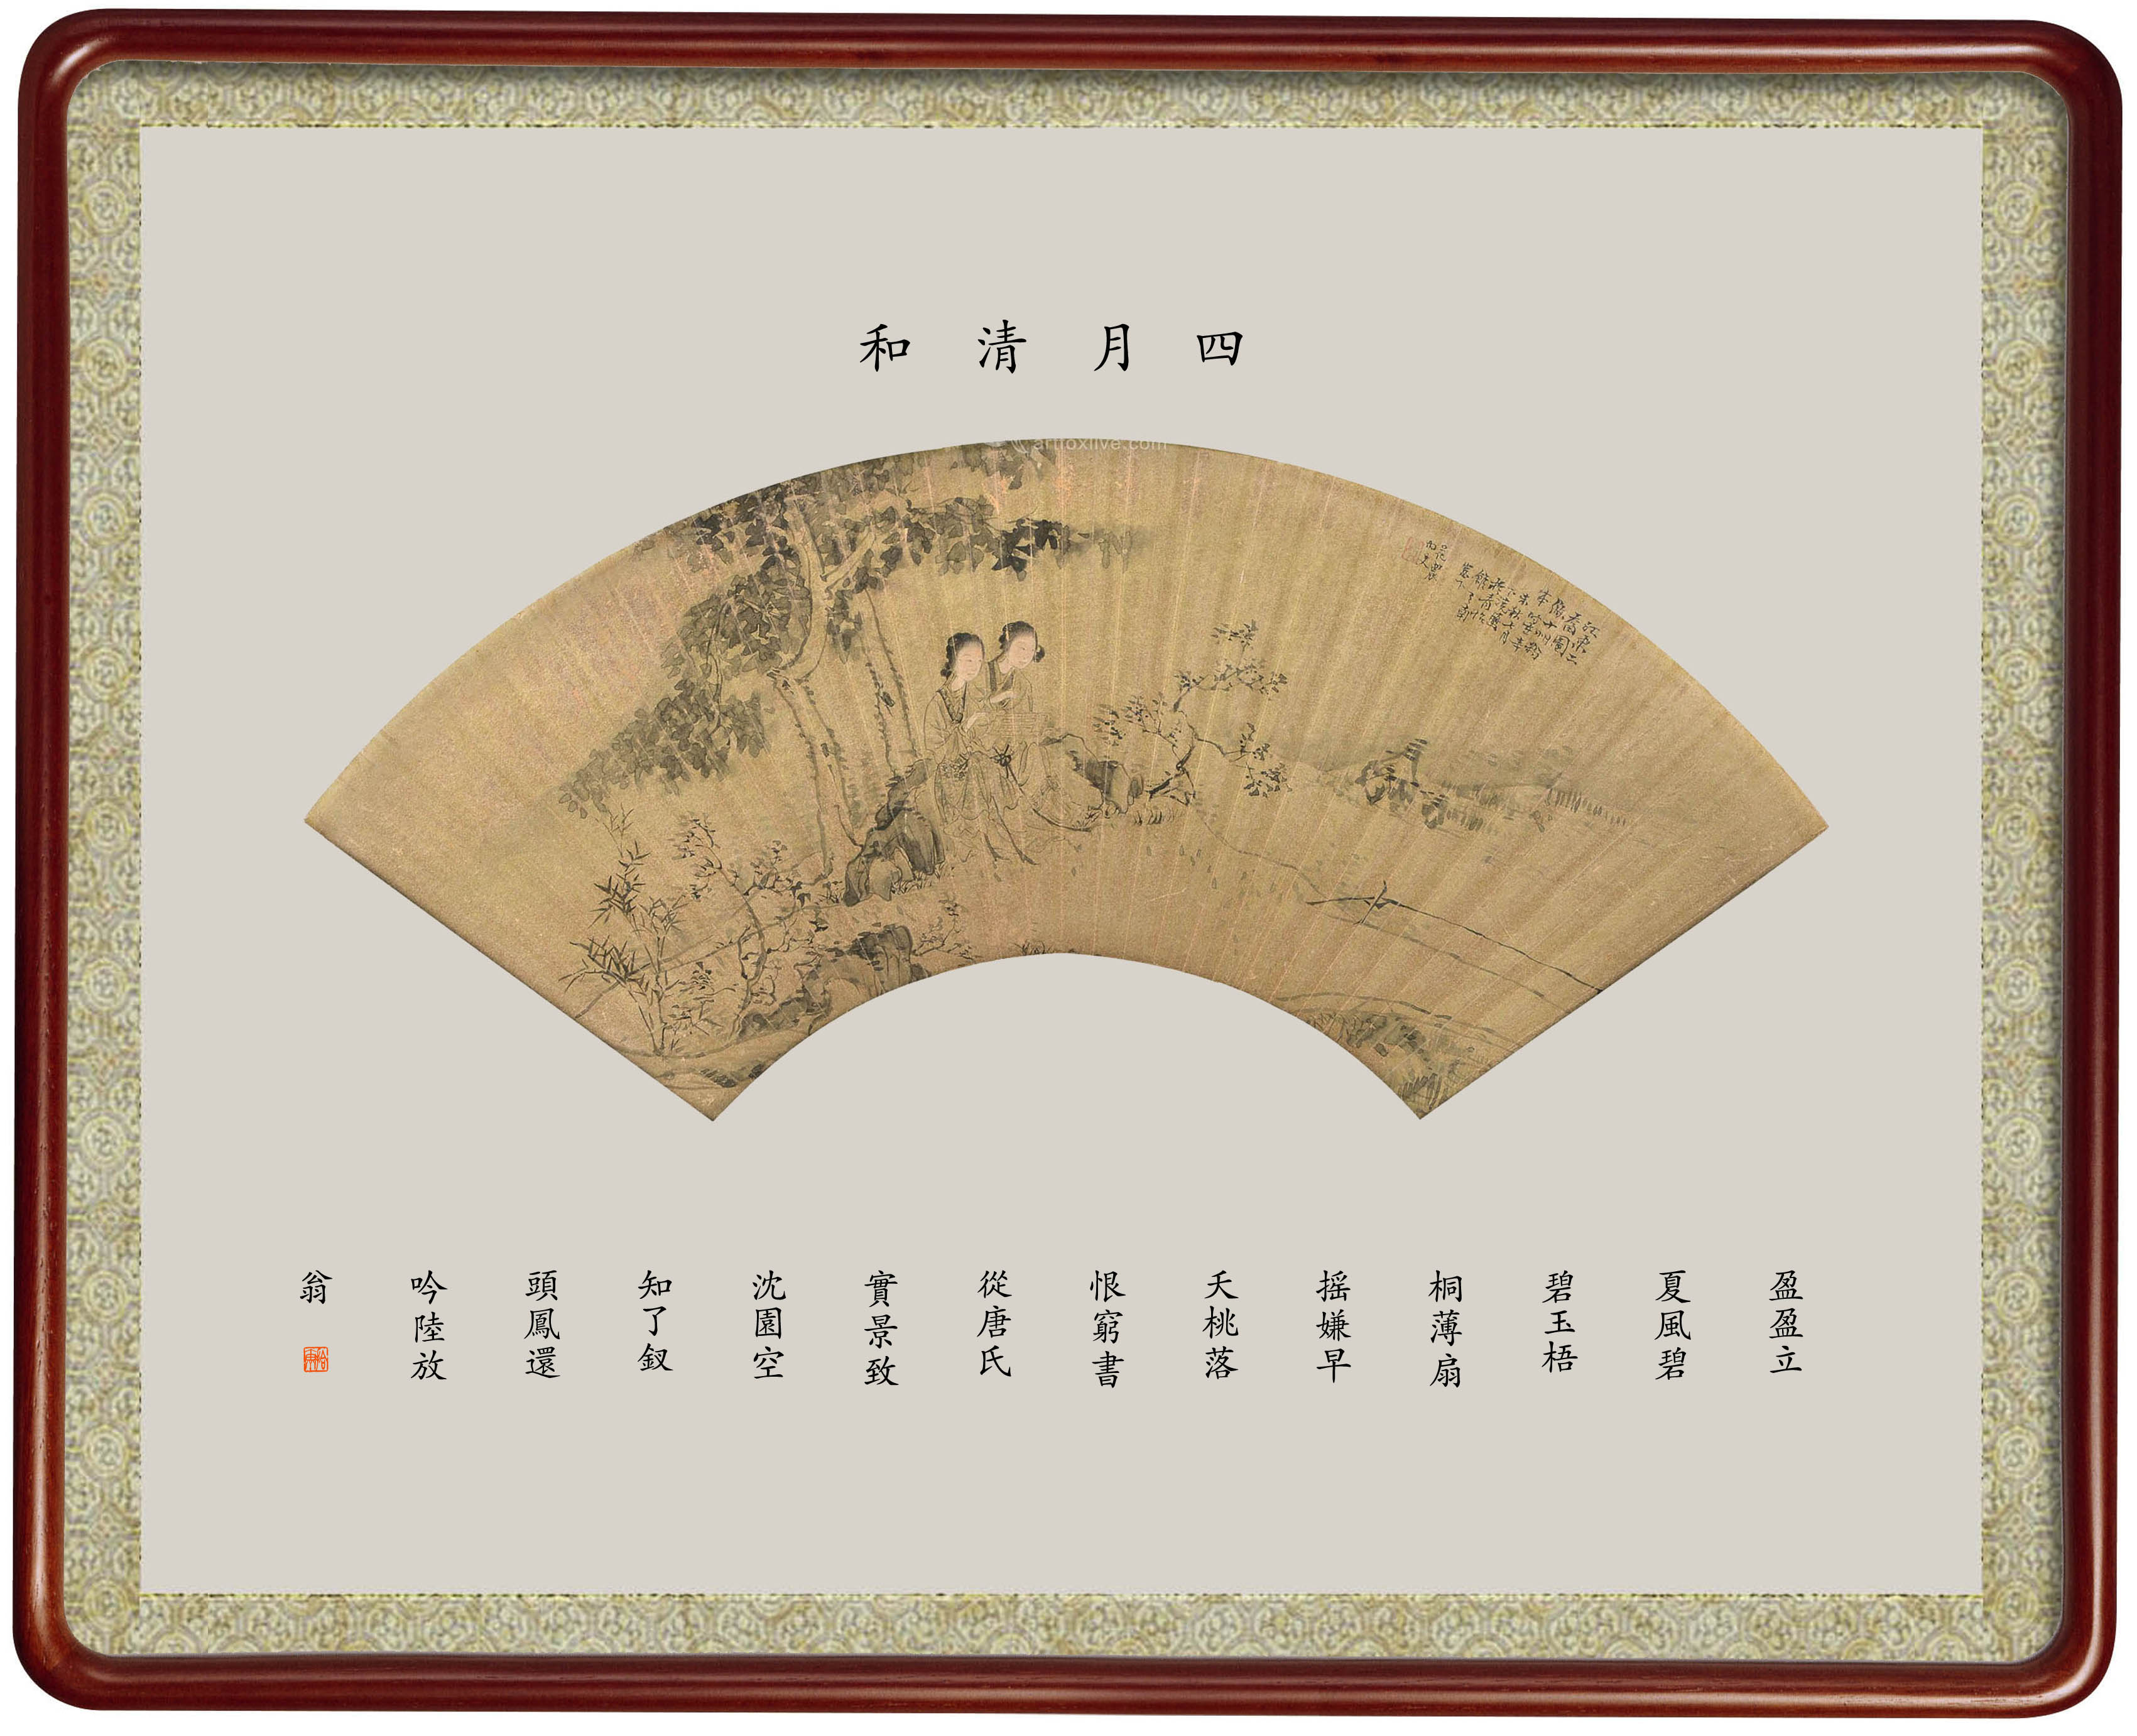 四月清和
artfoxlive.com
盈盈立
夏風碧
碧玉梧
桐薄扇
摇嫌早
夭桃落
恨窮書
從唐氏
實景致
沈園空
知了釵
頭鳳還
吟陸放
翁